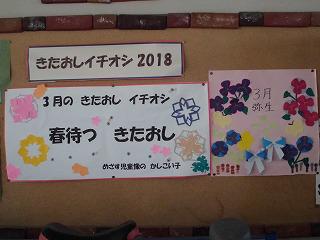 きたおしイチオシ 2018
3月の きたおし イチオシ
春待つ きたおし
めざす児童像の かしこい子
3月
弥生